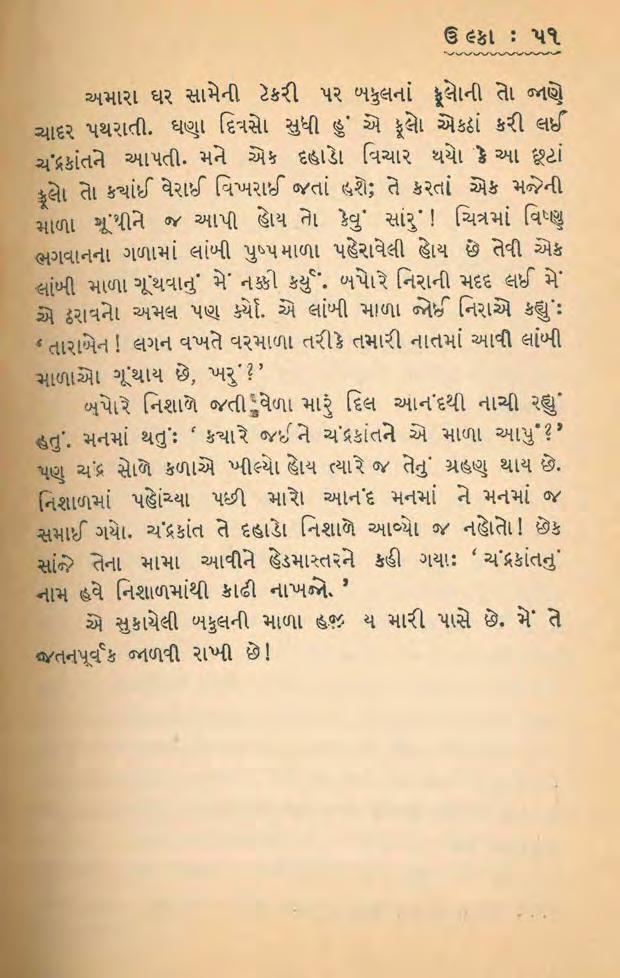 ઉલ્કા : ૫૧
અમારા ઘર સામેની ટેકરી પર બકુલનાં ફૂલોની તો જાણે
ચાદર પથરાતી. ઘણા દિવસો સુધી હું એ ફૂલો એકઠાં કરી લઈ
ચંદ્રકાંતને આપતી. મને એક દહાડો વિચાર થયો કે આ છૂટાં
ફૂલો તો કયાંઈ વેરાઈ વિખરાઈ જતાં હશે; તે કરતાં એક મજેની
માળા ગૂંથીને જ આપી હોય તો કેવું સારું! ચિત્રમાં વિષ્ણુ
ભગવાનના ગળામાં લાંબી પુષ્પમાળા પહેરાવેલી હોય છે તેવી એક
લાંબી માળા ગૂંથવાનું મેં નક્કી કર્યું. બપોરે નિરાની મદદ લઈ મેં
એ ઠરાવનો અમલ પણ કર્યો. એ લાંબી માળા જોઈ નિરાએ કહ્યું:
‘તારાબેન! લગન વખતે વરમાળા તરીકે તમારી નાતમાં આવી લાંબી
માળાઓ ગૂંથાય છે, ખરું?’
બપોરે નિશાળે જતી વેળા મારું દિલ આનંદથી નાચી રહ્યું
હતું. મનમાં થતું: ‘કયારે જઈને ચંદ્રકાંતને એ માળા આપું?’
પણ ચંદ્ર સોળે કળાએ ખીલ્યો હોય ત્યારે જ તેનું ગ્રહણ થાય છે.
નિશાળમાં પહોંચ્યા પછી મારો આનંદ મનમાં ને મનમાં જ
સમાઈ ગયો. ચંદ્રકાંત તે દહાડો નિશાળે આવ્યો જ નહોતો! છેક
સાંજે તેના મામા આવીને હેડમાસ્તરને કહી ગયા: ‘ચંદ્રકાંતનું
નામ હવે નિશાળમાંથી કાઢી નાખજો.’
એ સુકાયેલી બકુલની માળા હજી ય મારી પાસે છે. મેં તે
જતનપૂર્વક જાળવી રાખી છે!